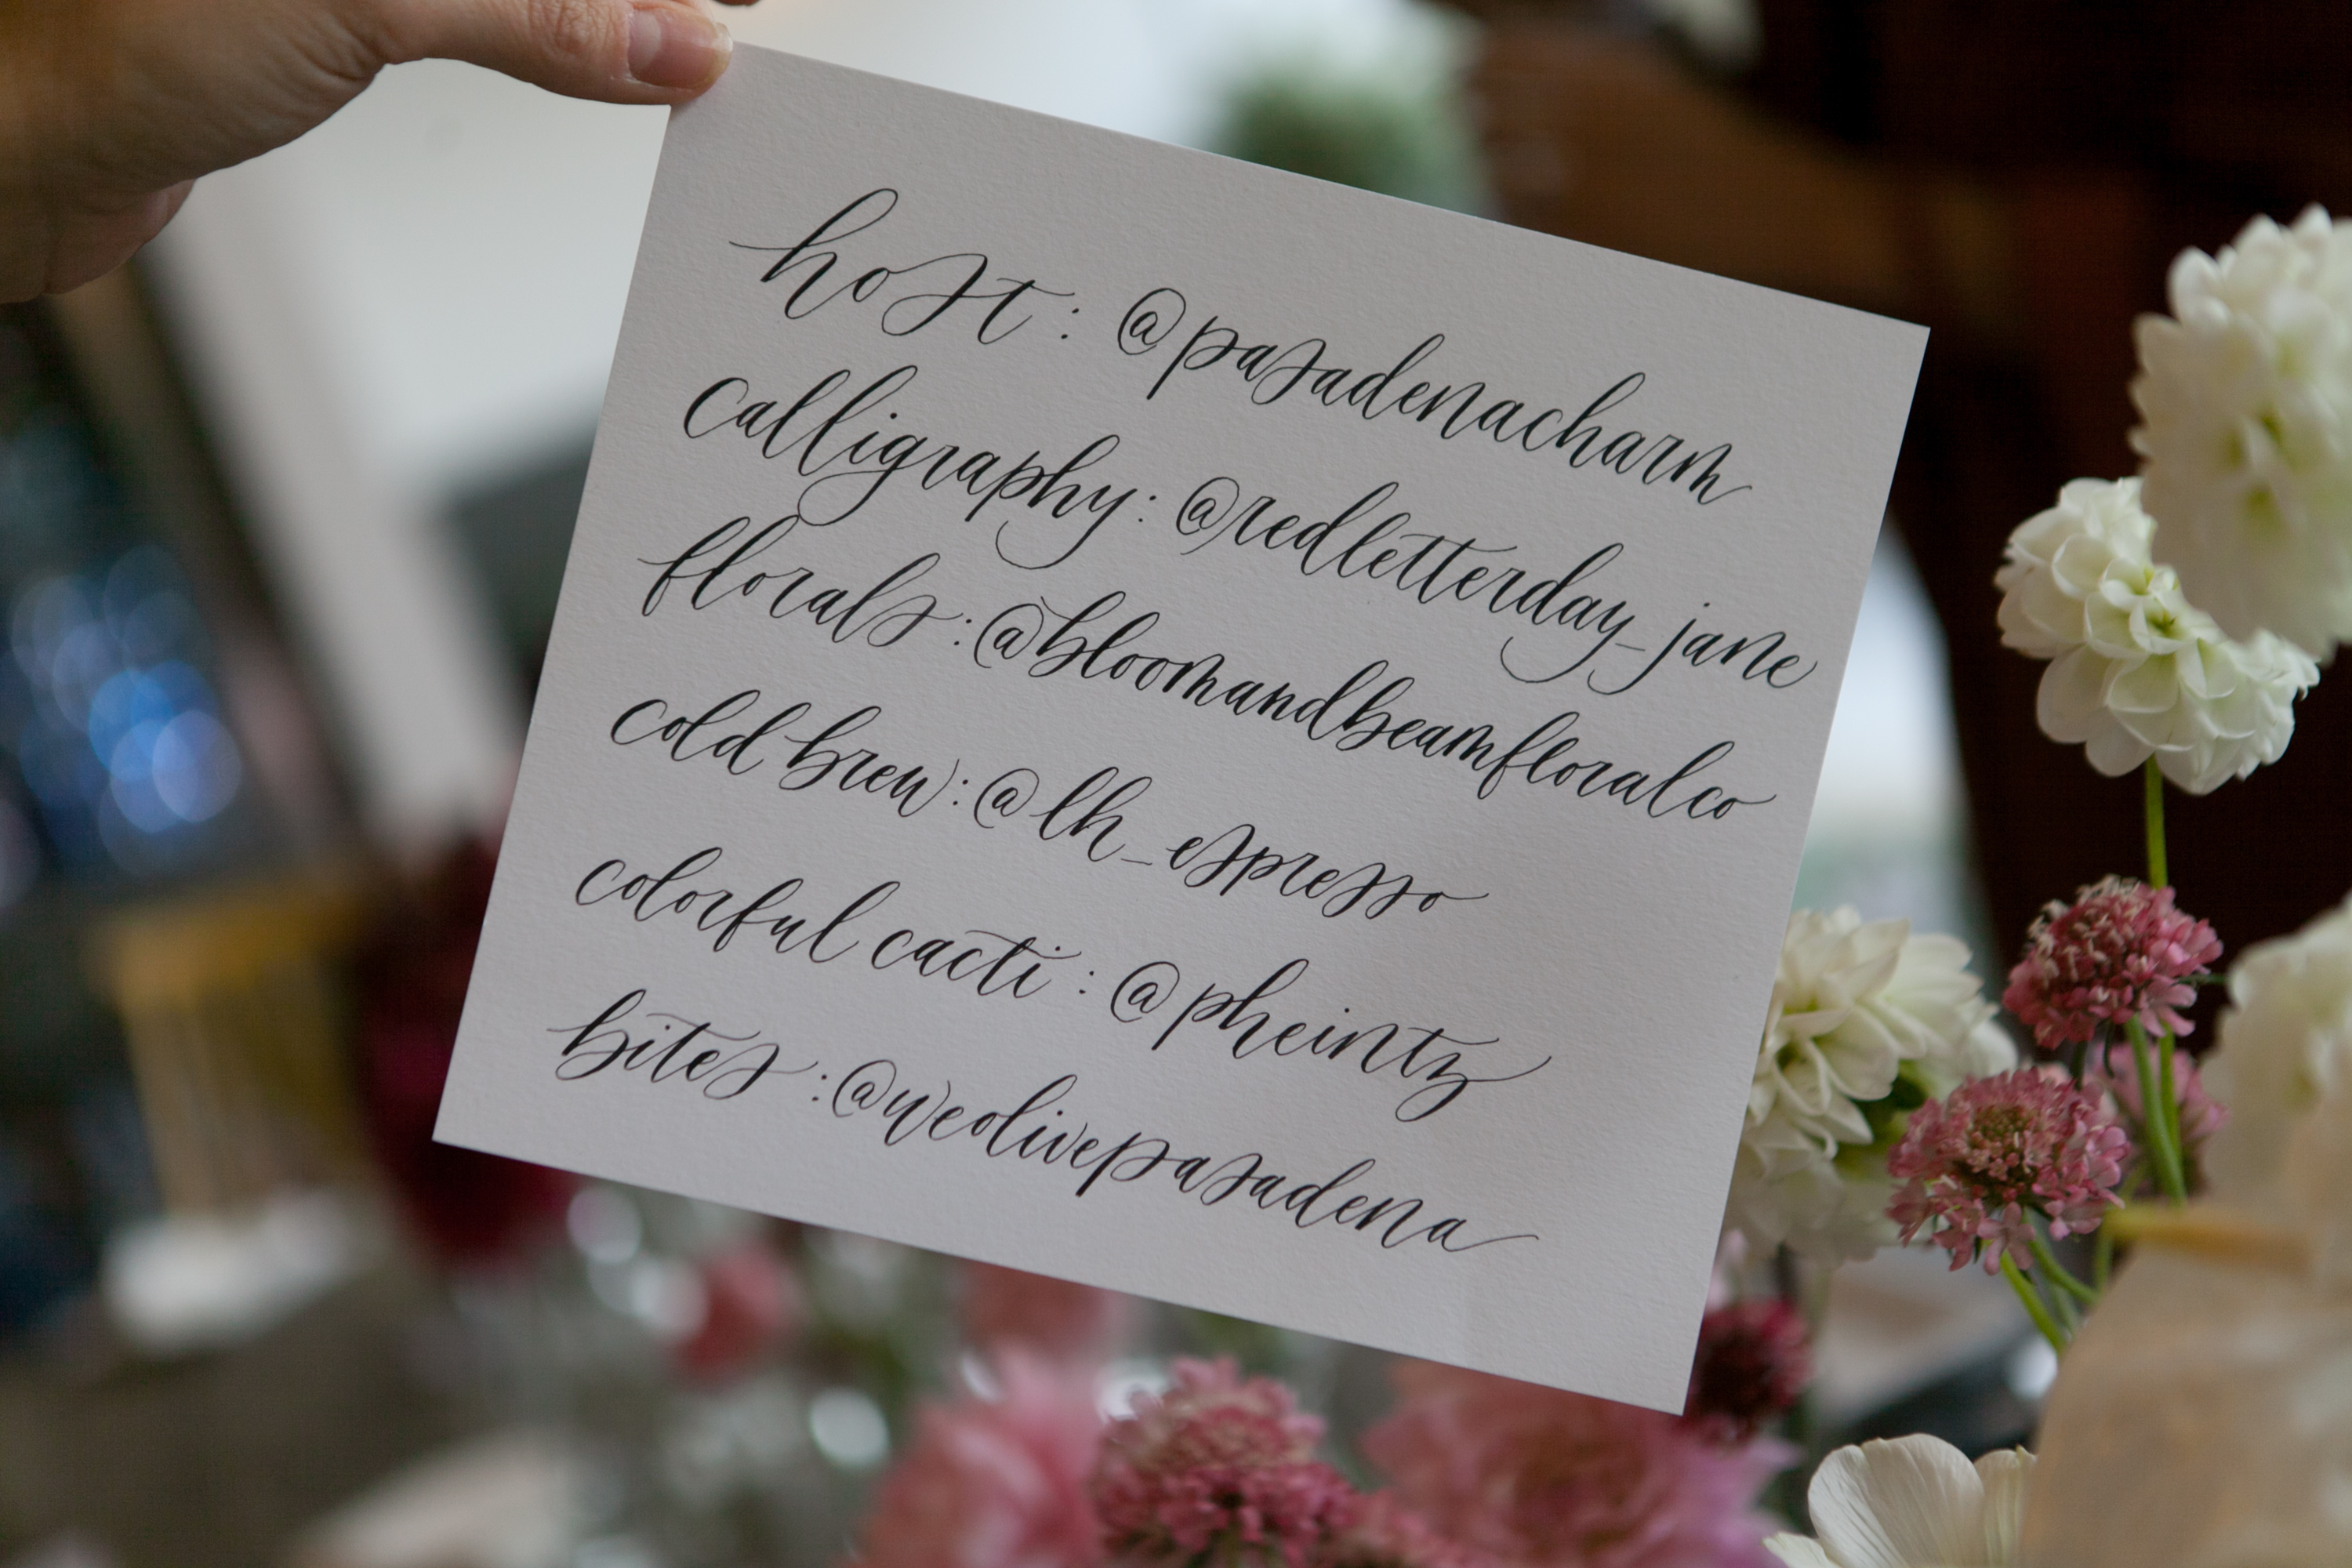 host: @pasadenacharm
calligraphy: @redletterday_jane
florals: @bloomandbeamfloralco
cold brew: @lh_espresso
colorful cacti: @pheintz
bites: @weolivepasadena